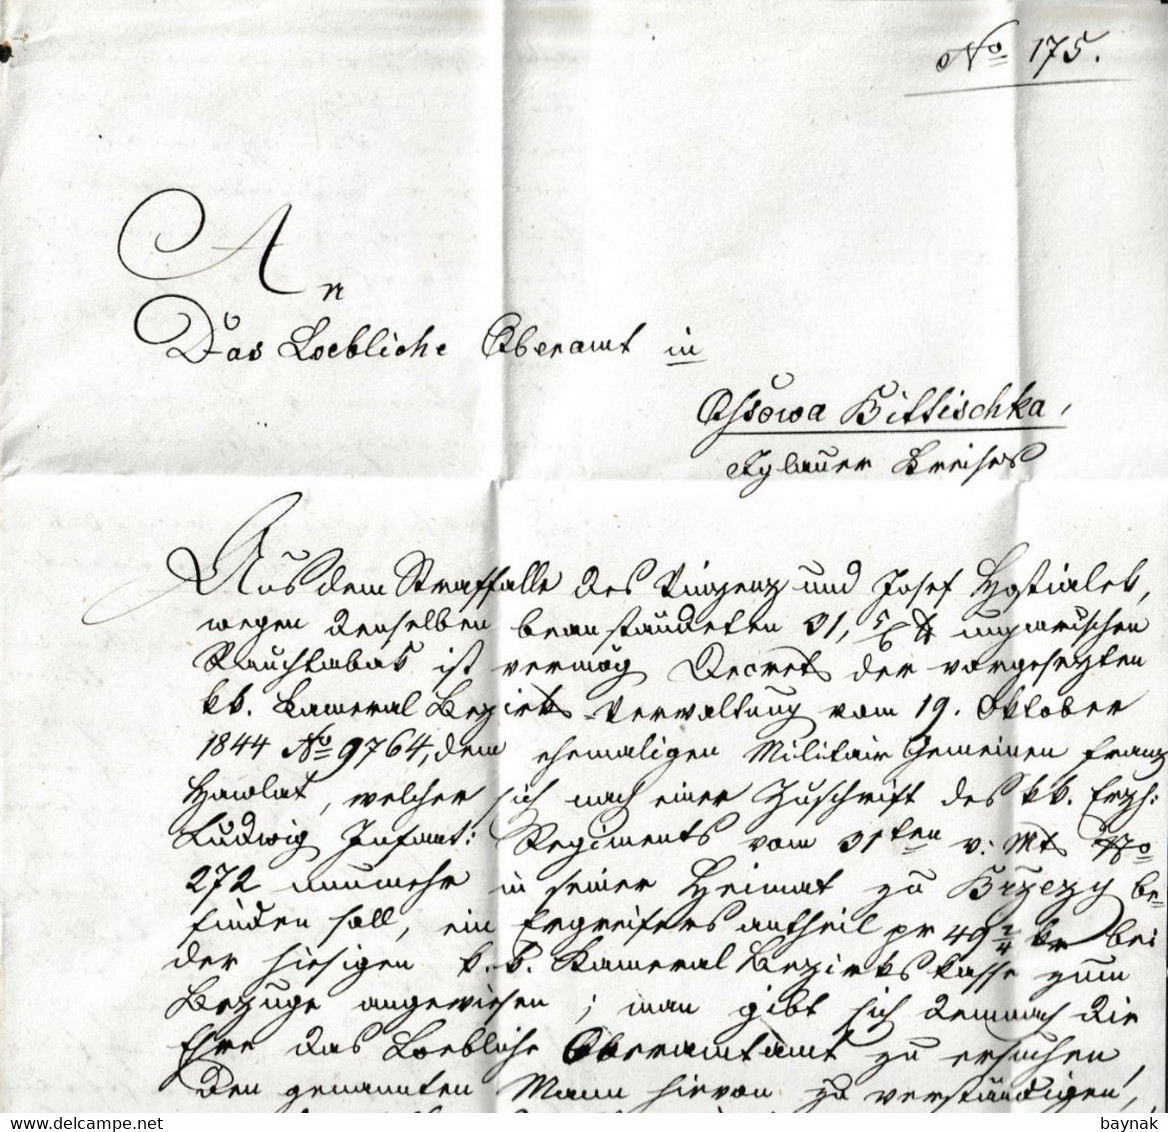 No 175.
An
Das Loebliche Oberamt in
Ossowa Bittischka,
Iglauer Kreises
Aus dem Straffalle des Vinzenz und Josef Hostialek,
wegen denselben beanständeten 31, 5/8 ℔ ungarischen
Rauchtabak ist vermög Decrets der vorgesezten
kk. Kameral Bezirks Verwaltung vom 19. Oktober
1844 No 9764, dem ehemaligen Militair Gemeinen Franz
Hawlat, welcher sich nach einer Zuschrift des kk. Erzh:
Ludwig Infant: Regiments vom 31ten v: Mts No
272 nunmehr in seiner Heimat zu Brzezy be=
finden soll, ein Ergreifers antheil pr 49 2/4 kr bei
der hiesigen k. k. Kameral Bezirkskasse zum
Bezuge angewiesen; man gibt sich demnach die
Ehre das Loebliche Oberamtamt zu ersuchen,
den genannten Mann hievon zu verständigen,
baynak